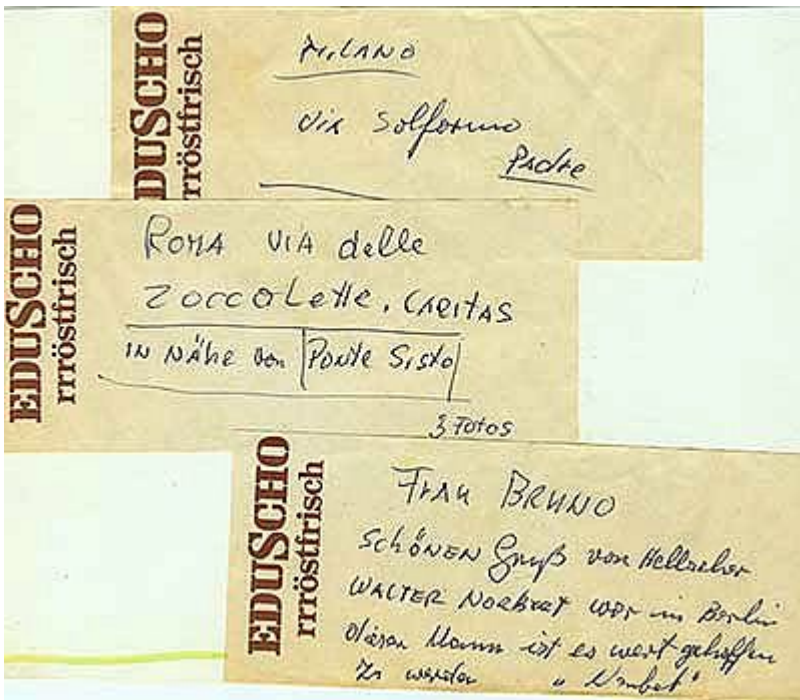 EDUSCHO
rrröstfrisch
MILANO
Via Solferino
Padre
EDUSCHO
rrröstfrisch
ROMA VIA delle
ZoccoLette, CARITAS
IN NÄHE von PONTE Sisto
3 Fotos
EDUSCHO
rrröstfrisch
FRAU BRUNO
SCHÖNEN Gruß von
WALTER NORBERT war in Berlin
diesen Mann ist es wert geholfen
zu werden